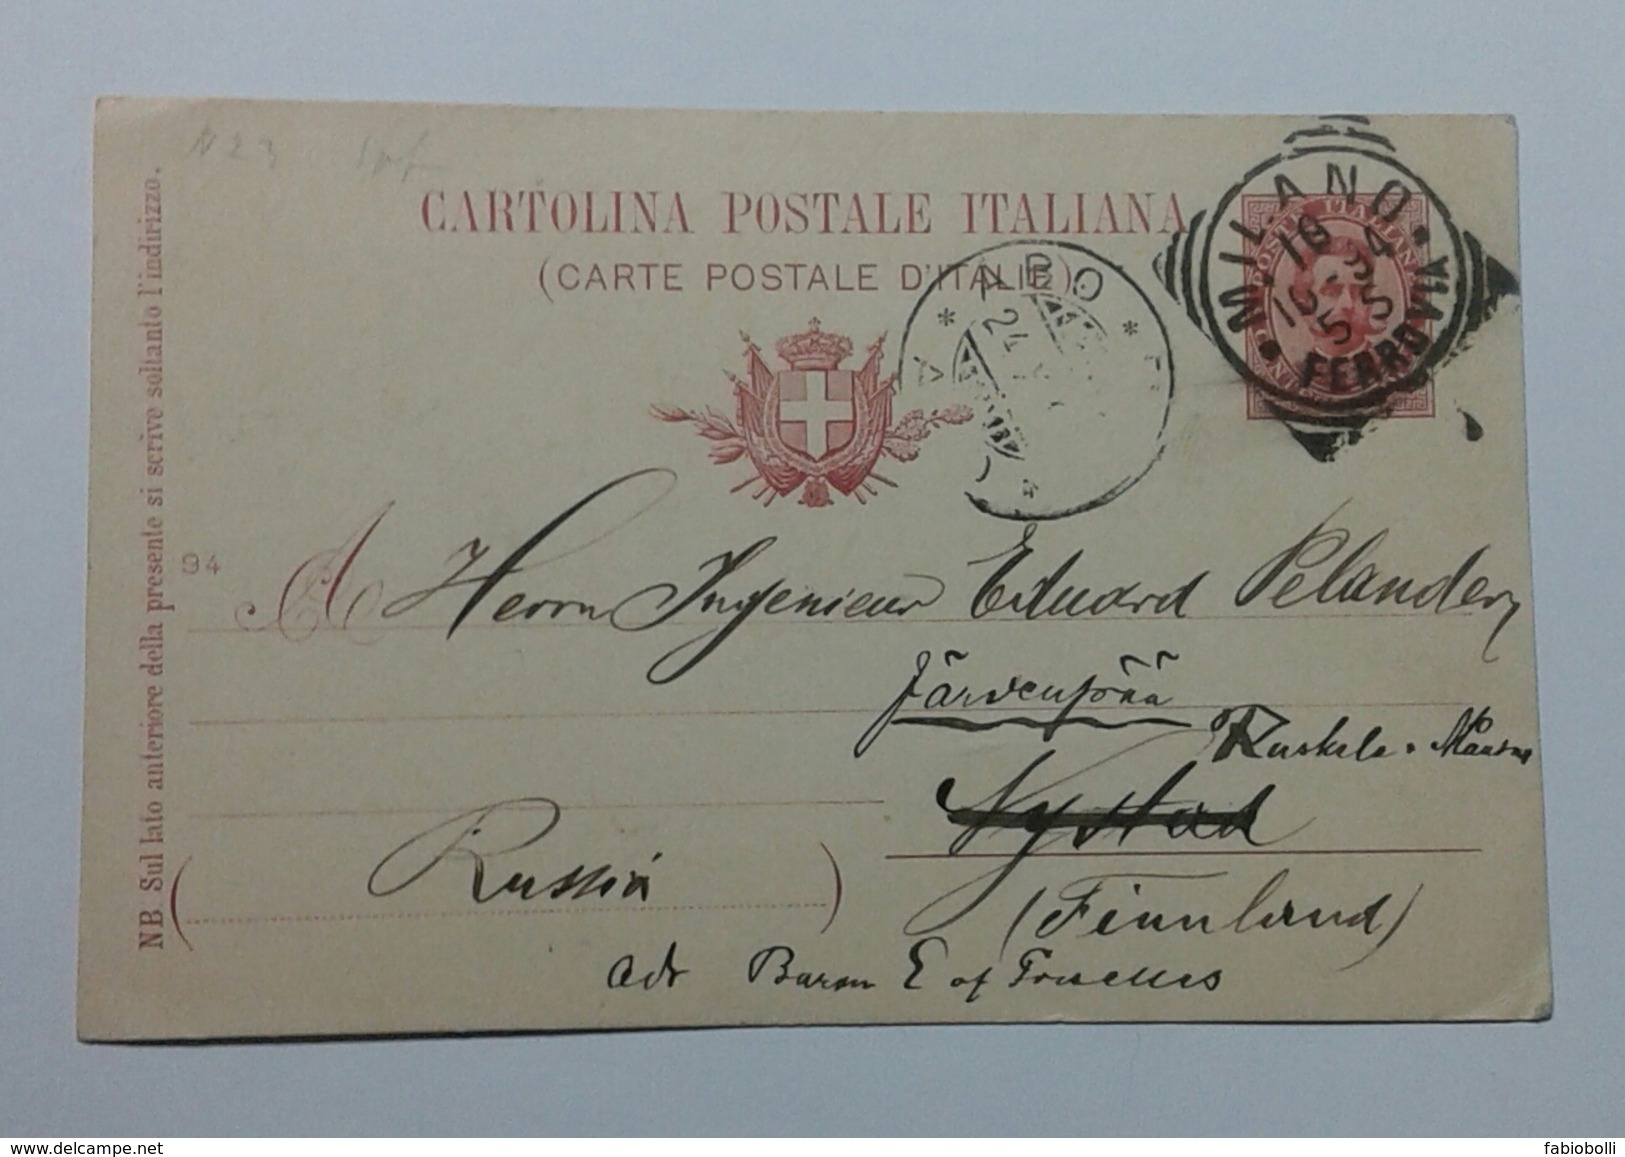 N 23
CARTOLINA POSTALE ITALIANA
(CARTE POSTALE D'ITALIE)
MILANO
10 94
10-5 S
FERROVIA
POSTE ITALIANE
ABO
24
NB. Sul lato anteriore della presente si scrive soltanto l'indirizzo.
94
A Herrn Ingenieur Eduard Pelander,
Järvenpää
Ruskela
Nystad
Russia
(Finnland)
adr Baron E af
www.delcampe.net
fabiobolli